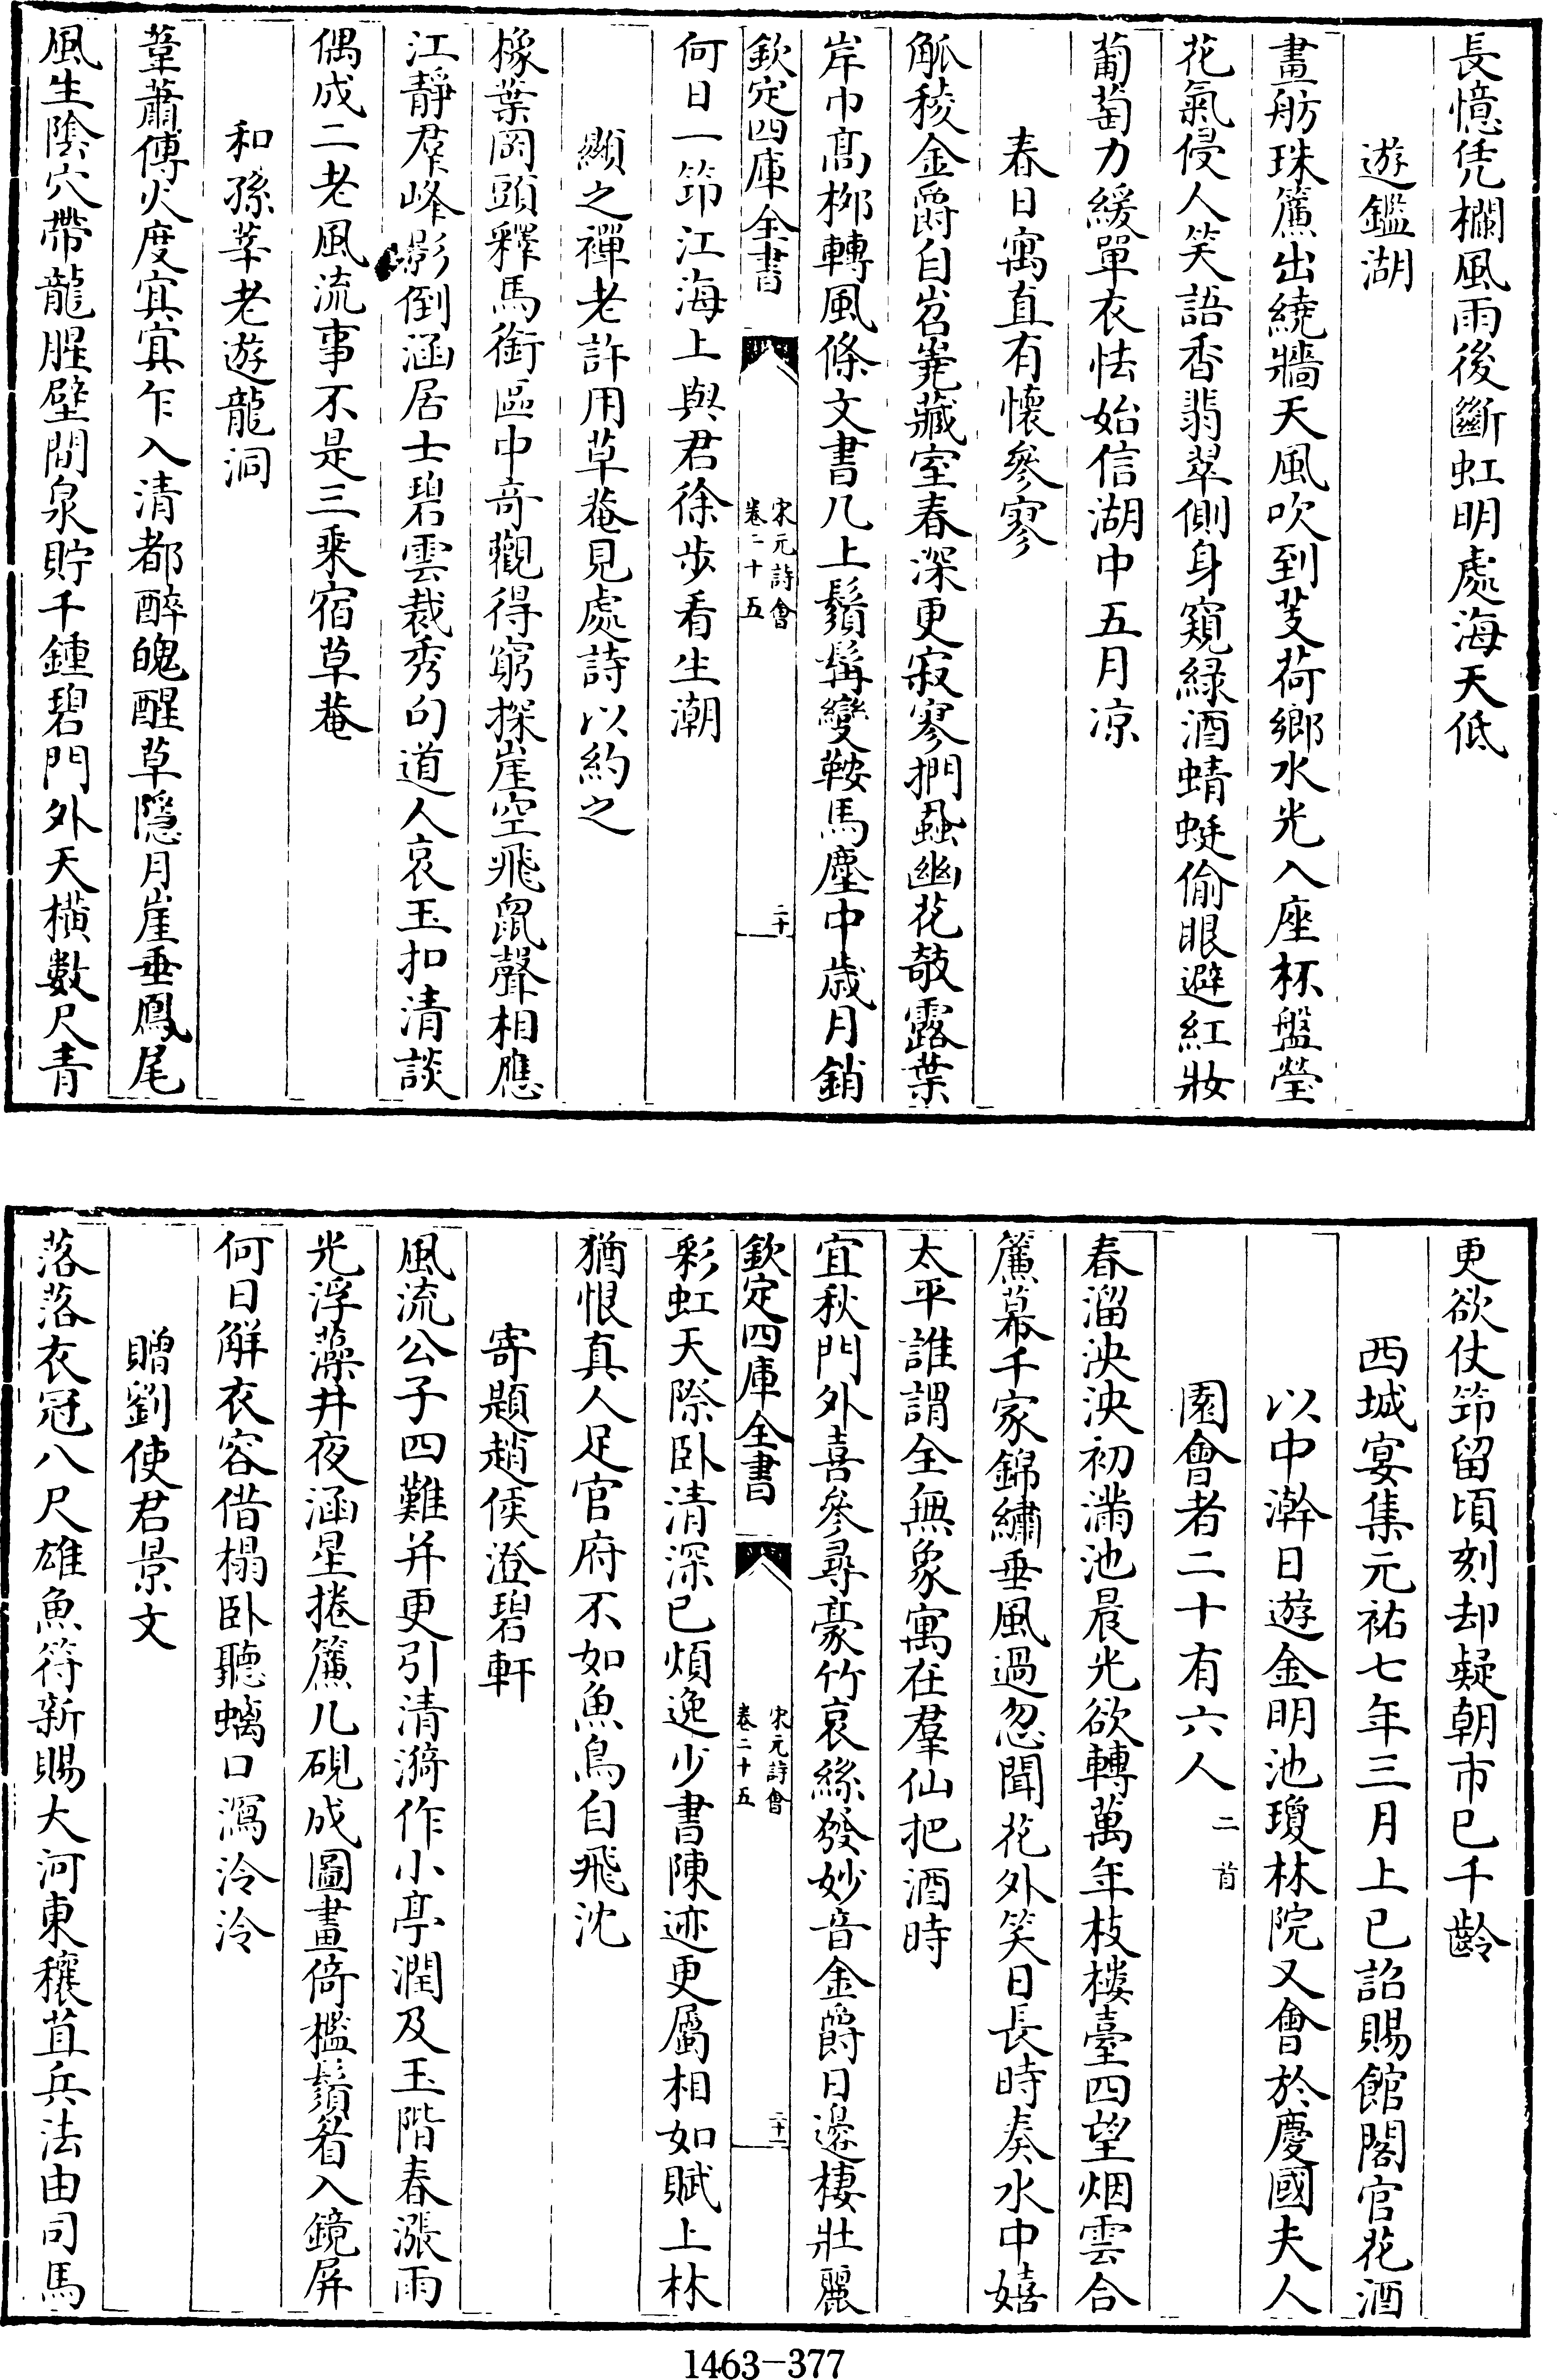 長憶凭欄風雨後斷虹明處海天低
遊鑑湖
畫舫珠簾出繞牆天風吹到芰荷鄉水光入座杯盤瑩
花氣侵人笑語香翡翠側身窺綠酒蜻蜓偷眼避紅妝
葡萄力緩單衣怯始信湖中五月凉
春日寓直有懷參寥
觚稜金爵自岧嶤藏室春深更寂寥捫蝨幽花欹露葉
岸巾髙栁轉風條文書几上鬚髯變鞍馬塵中歲月銷
欽定四庫全書
宋元詩會
卷二十五
二十
何日一笻江海上與君徐步看生潮
顯之禪老許用草菴見處詩以約之
橡葉岡頭釋馬銜區中奇觀得窮探崖空飛鼠聲相應
江靜羣峰影倒涵居士碧雲裁秀句道人哀玉扣清談
偶成二老風流事不是三乘宿草菴
和孫莘老遊龍洞
葦蕭傅火度寘寘乍入清都醉魄醒草隠月崖垂鳳尾
風生隂穴帶龍腥壁間泉貯千鍾碧門外天横數尺青
更欲仗笻留頃刻却疑朝市已千齡
西城宴集元祐七年三月上巳詔賜館閣官花酒
以中澣日遊金明池瓊林院又會於慶國夫人
園會者二十有六人 二首
春溜泱泱初滿池晨光欲轉萬年枝樓臺四望烟雲合
簾幕千家錦繡垂風過忽聞花外笑日長時奏水中嬉
太平誰謂全無象寓在羣仙把酒時
宜秋門外喜參尋豪竹哀絲發妙音金爵日邊棲壯麗
欽定四庫全書
宋元詩會
卷二十五
二十一
彩虹天際卧清深已煩逸少書陳迹更屬相如賦上林
猶恨真人足官府不如魚鳥自飛沈
寄題趙侯澄碧軒
風流公子四難并更引清漪作小亭潤及玉階春漲雨
光浮藻井夜涵星捲簾几硯成圖畫倚檻鬚眉入鏡屏
何日解衣容借榻卧聽螭口瀉泠泠
贈劉使君景文
落落衣冠八尺雄魚符新賜大河東穰苴兵法由司馬
1463-377